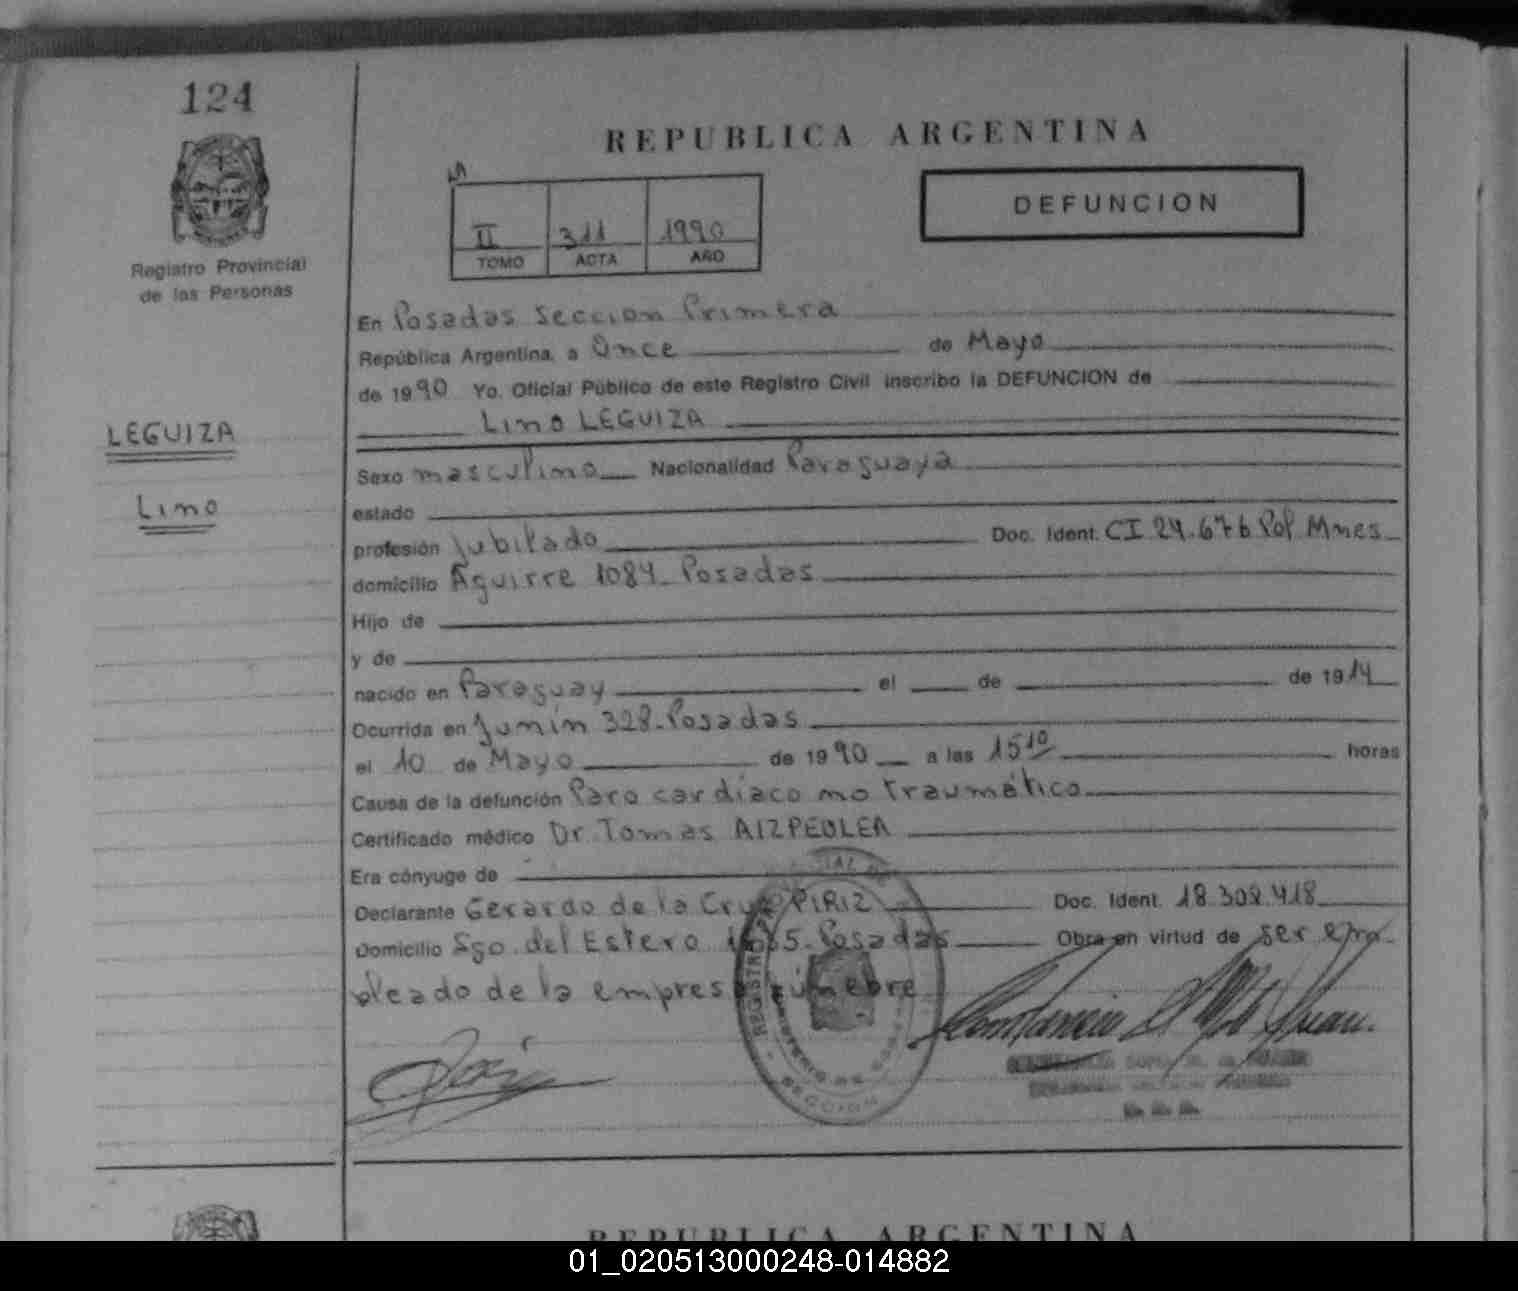 124
Registro Provincial
de las Personas
LEGUIZA
Lino
REPUBLICA ARGENTINA
DEFUNCION
II 311 1990
TOMO ACTA AÑO
En Posadas seccion Primera
República Argentina, a Once de Mayo
de 1990 Yo. Oficial Público de este Registro Civil inscribo la DEFUNCION de
Lino LEGUIZA
Sexo masculino Nacionalidad Paraguaya
estado
profesión Jubilado Doc. Ident. CI 24.676 Pol Mnes
domicilio Aguirre 1084 Posadas
Hijo de
y de
nacido en Paraguay el de de 1914
Ocurrida en Junín 328-Posadas
el 10 de Mayo de 1990 a las 15 10 horas
Causa de la defunción Paro cardíaco no traumático
Certificado médico Dr. Tomas AIZPEOLEA
Era cónyuge de
Declarante Gerardo de la Cruz PIRIZ Doc. Ident. 18.308.418
Domicilio Sgo. del Estero Posadas Obra en virtud de ser em-
pleado de la empresa fúnebre
SECCION
REPUBLICA ARGENTINA
01_020513000248-014882